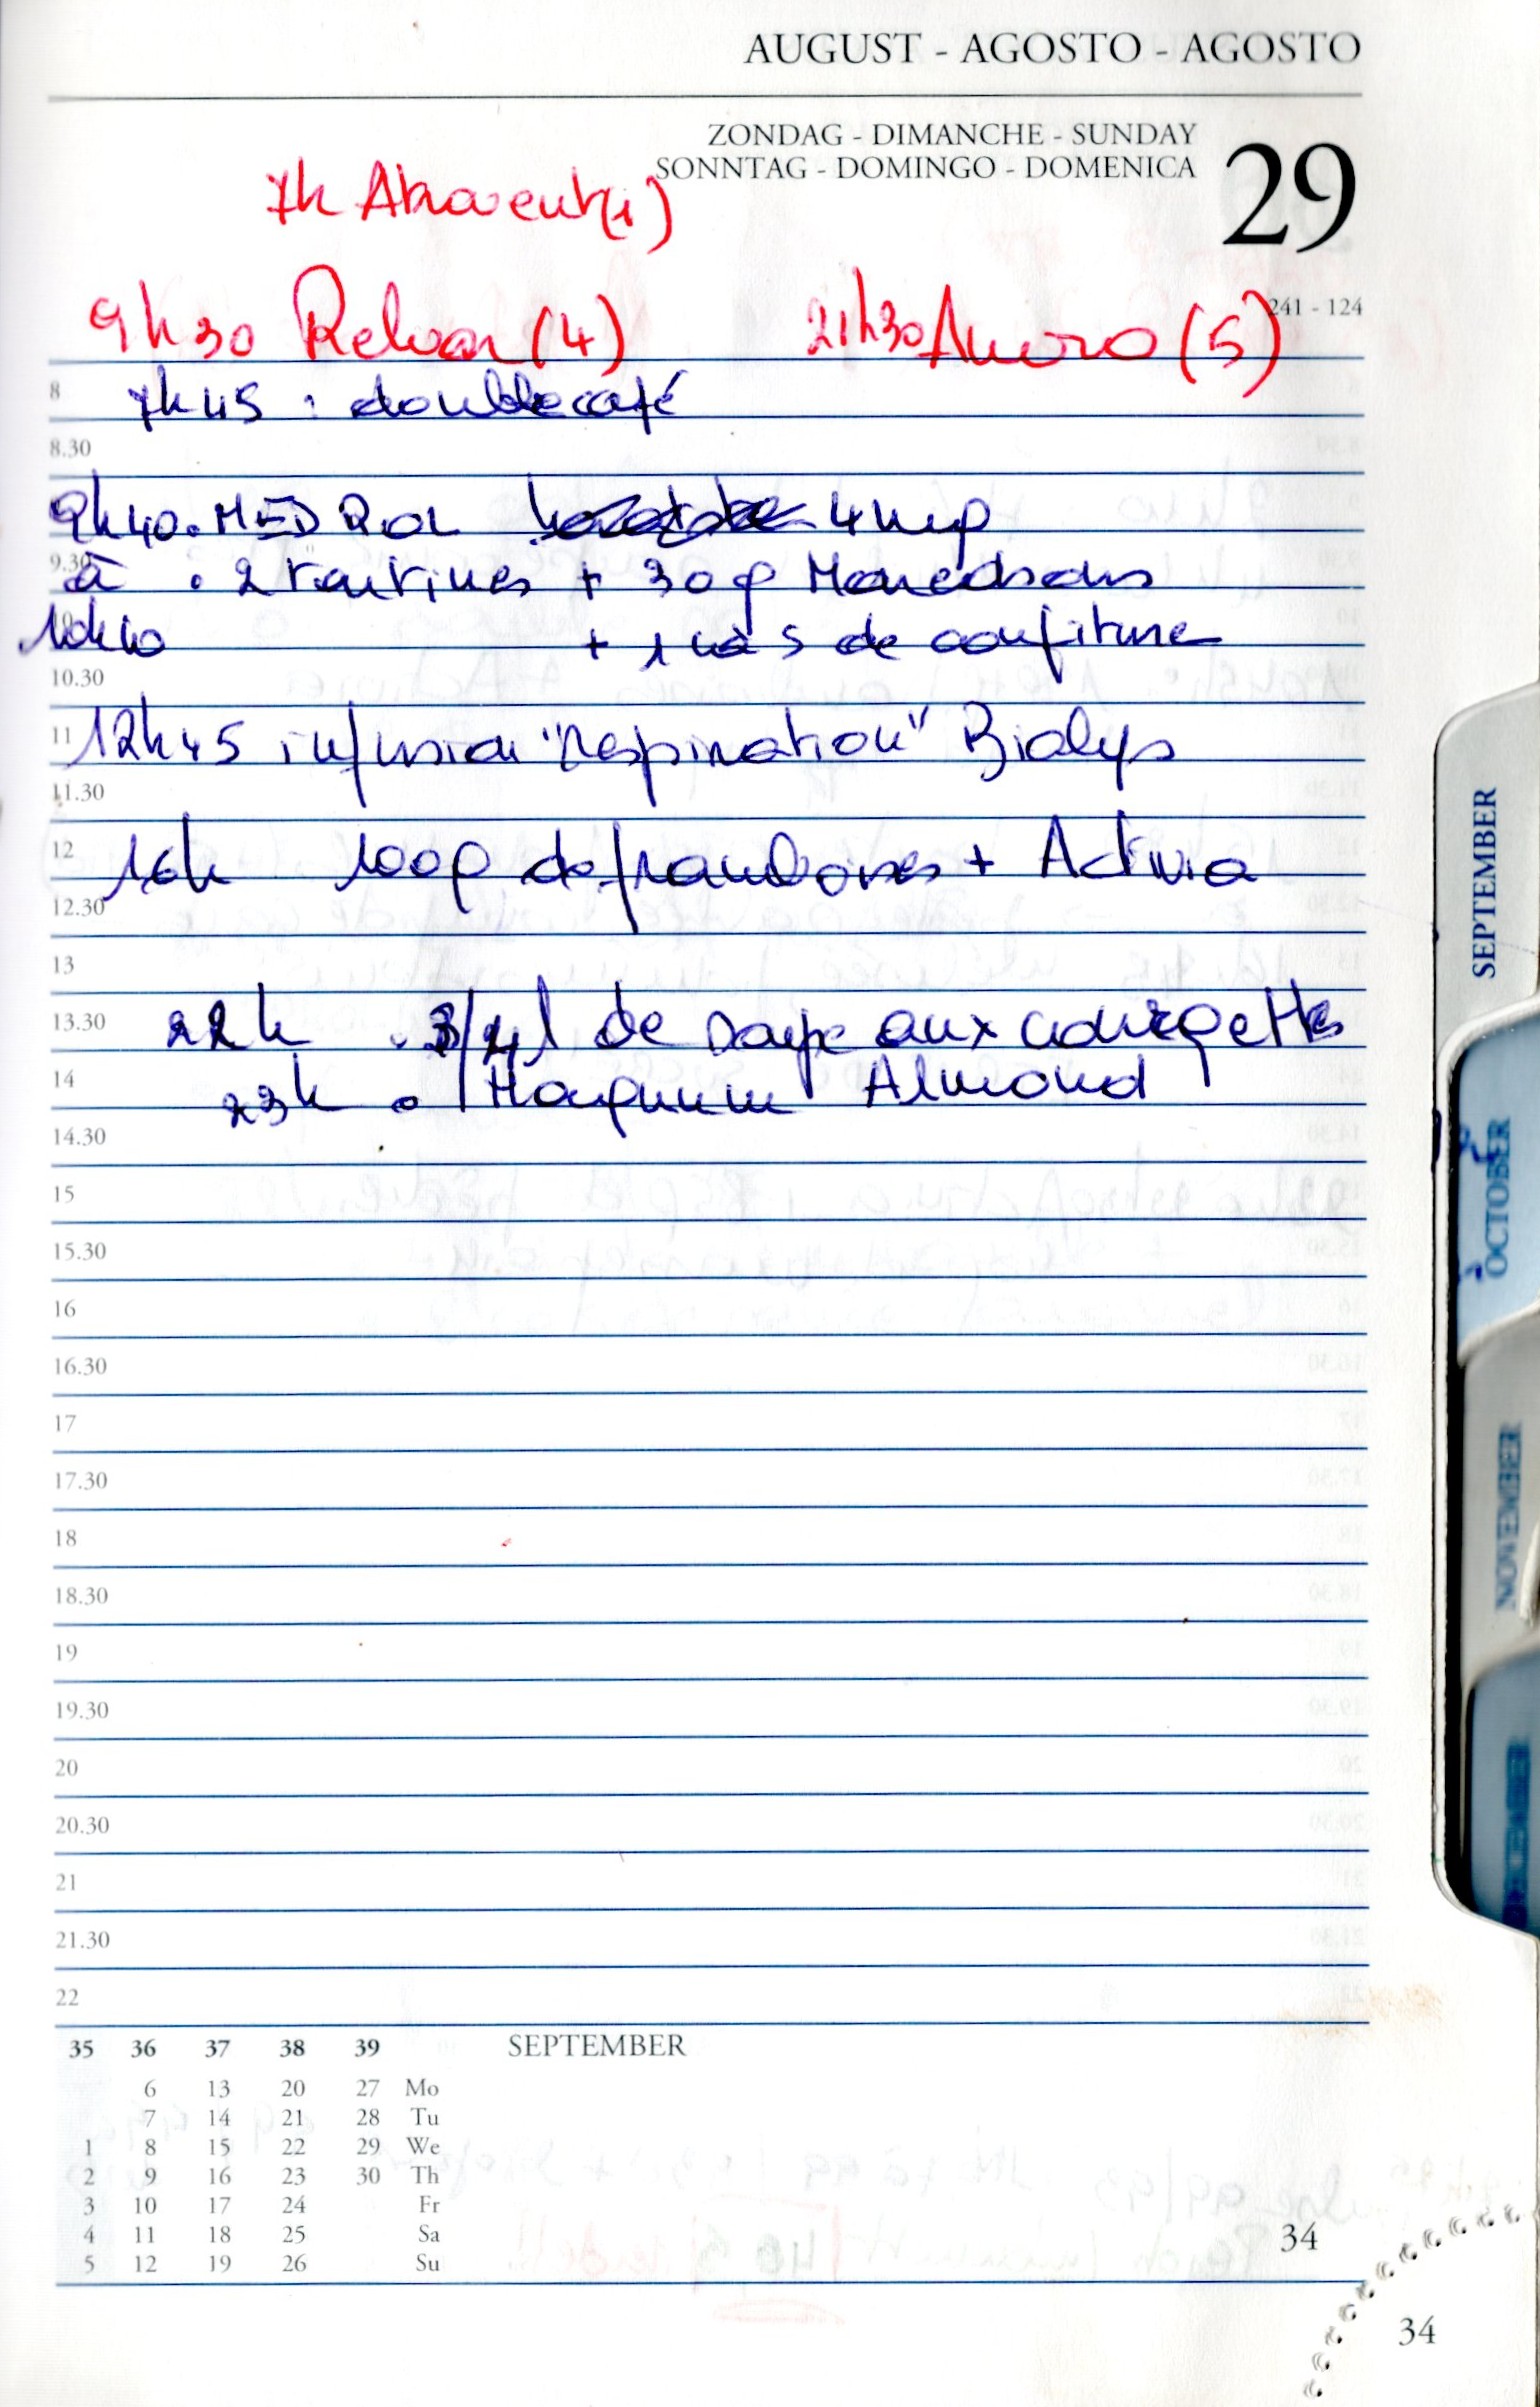 AUGUST - AGOSTO - AGOSTO
ZONDAG - DIMANCHE - SUNDAY
SONNTAG - DOMINGO - DOMENICA
29
7h Atrovent (1)
241 - 124
9h30 Relvar (4) 21h30 Anoro (5)
8 7h45 : double café
8.30
9h40 . MEDROL 4 mg
9.30 à . 2 tartines + 30 g
10h40 + 1 c à s de confiture
10.30
11 12h45 infusion "respiration" Biolys
11.30
12 16h 100g de framboises + Activia
12.30
13
13.30 22h . 3/4 l de soupe aux courgettes
14 23h . 1 Magnum Almond
14.30
15
15.30
16
16.30
17
17.30
18
18.30
19
19.30
20
20.30
21
21.30
22
35 36 37 38 39 SEPTEMBER
6 13 20 27 Mo
7 14 21 28 Tu
1 8 15 22 29 We
2 9 16 23 30 Th
3 10 17 24 Fr
4 11 18 25 Sa
5 12 19 26 Su
34
34
SEPTEMBER
OCTOBER
NOVEMBER
DECEMBER